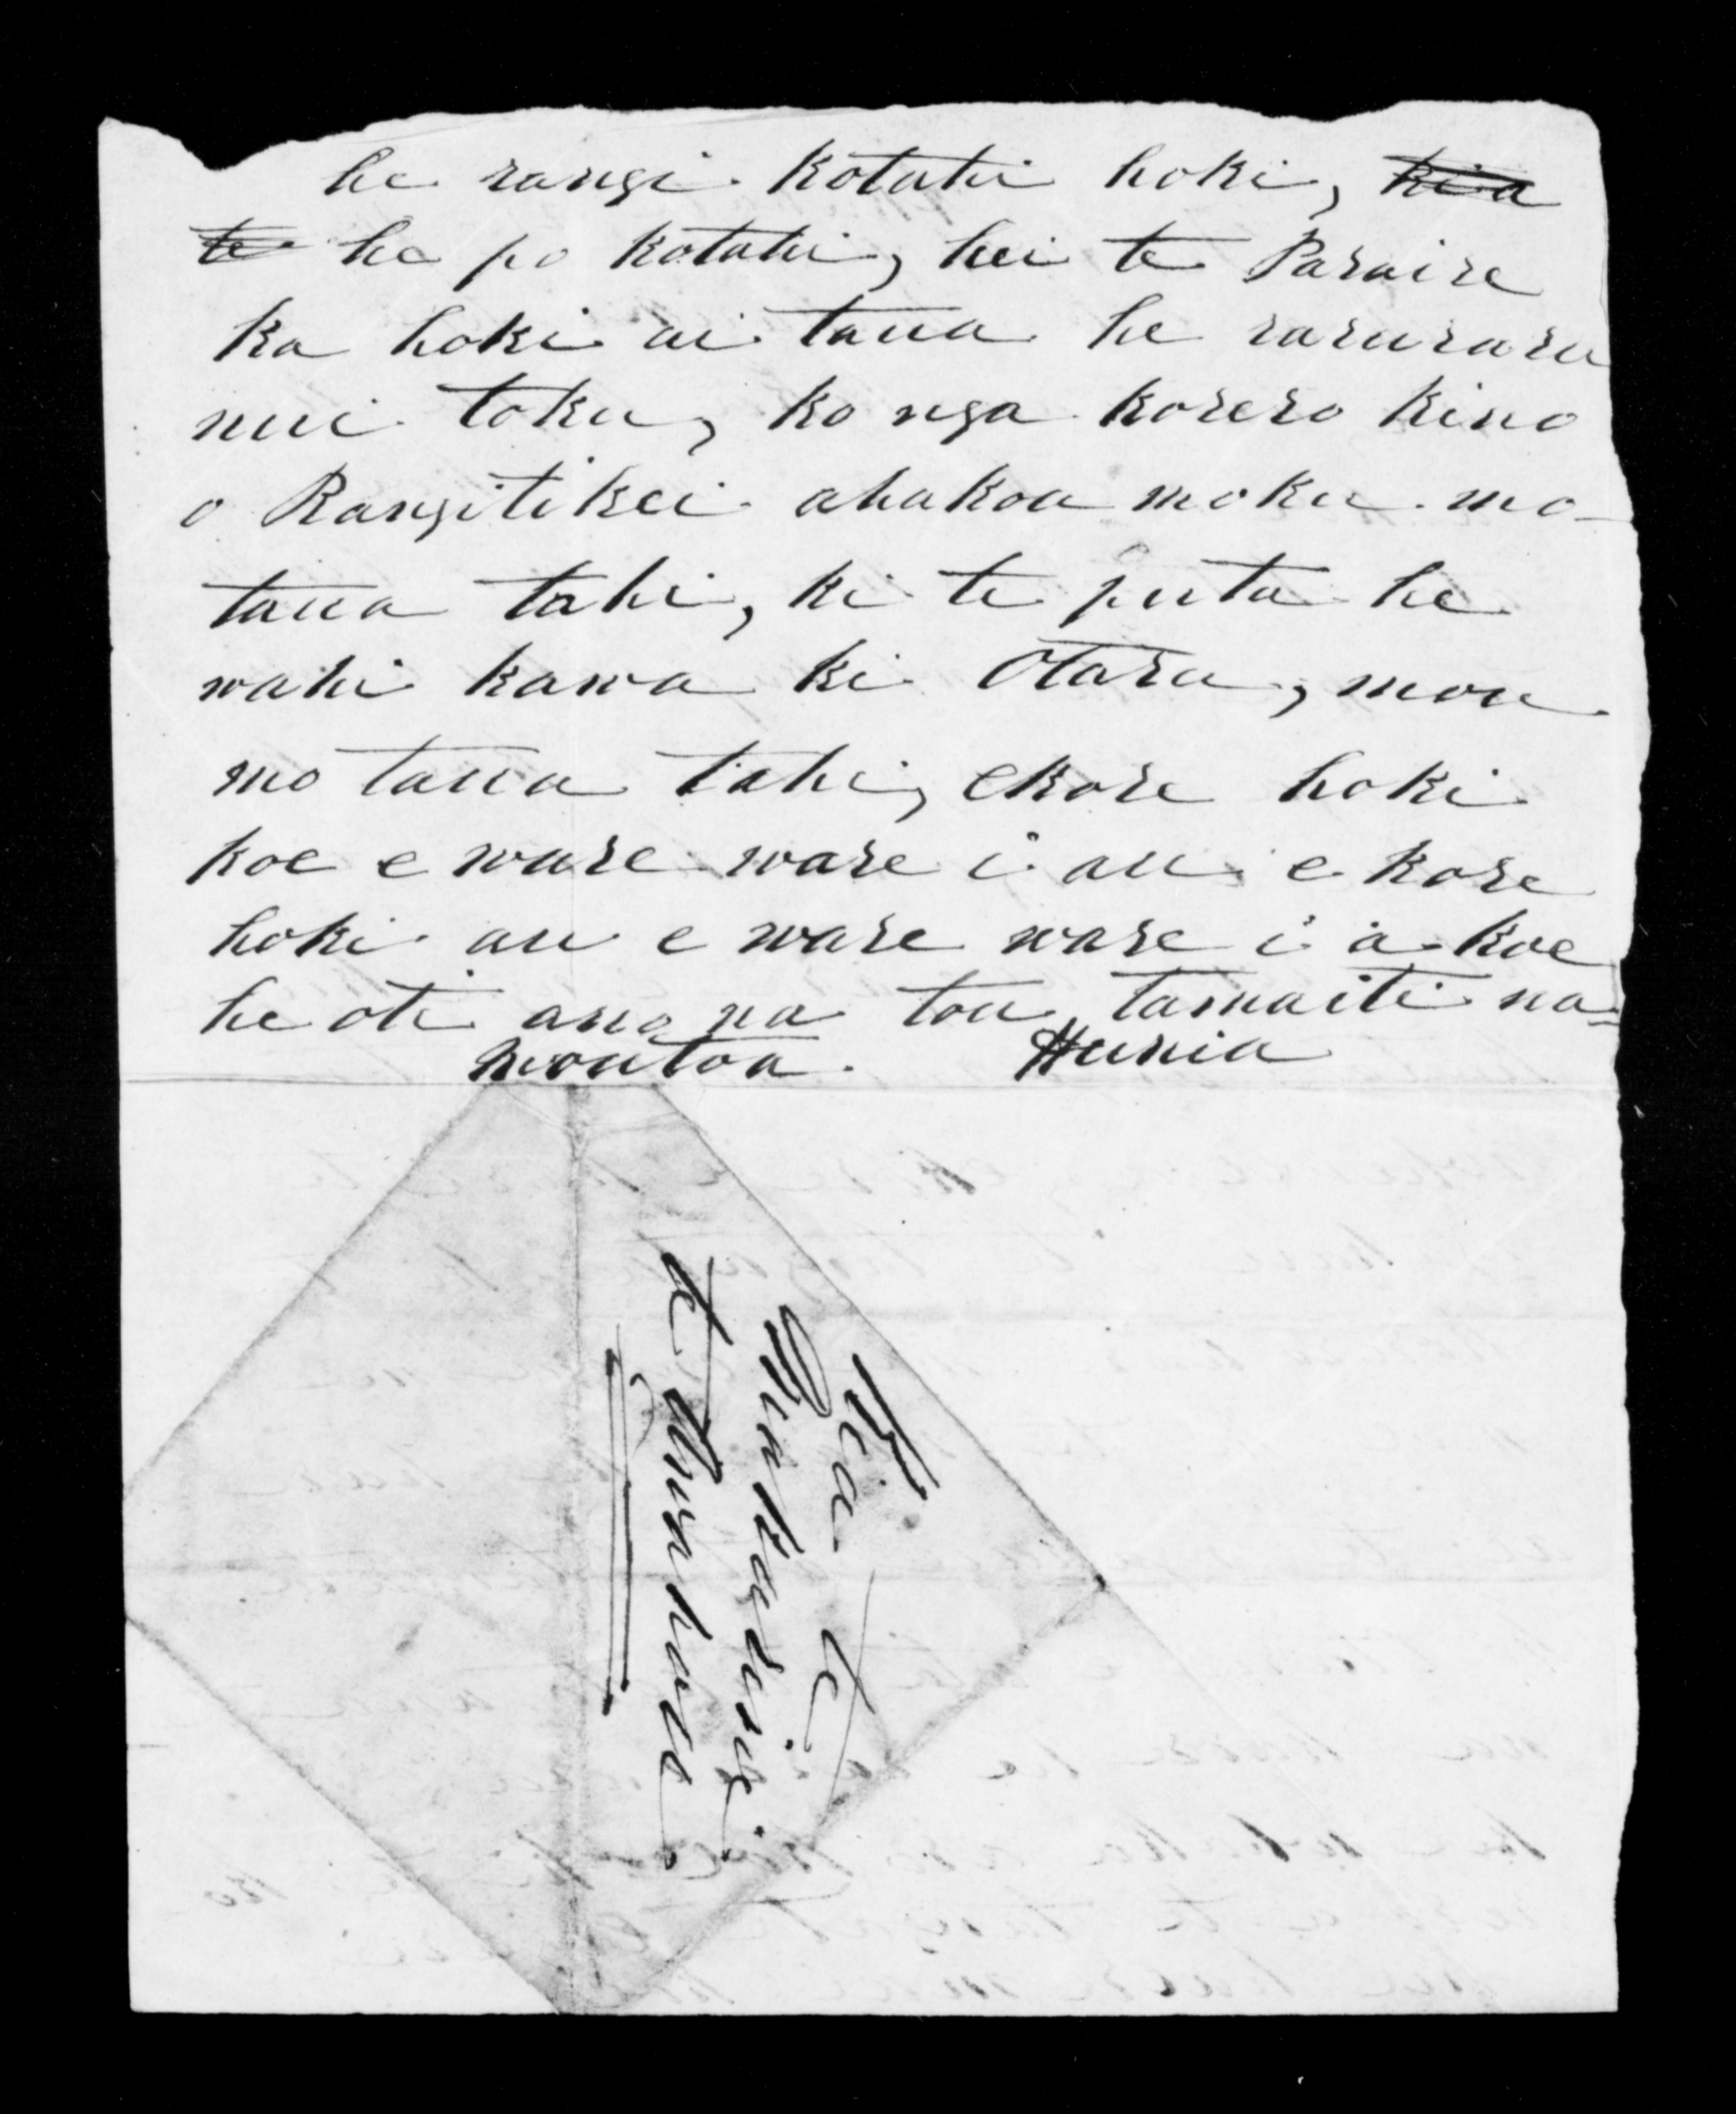 he rangi kotahi hoki, kia
te he po kotahi, hei te Paraire
ka hoki ai taua he raruraru
nui toku, ko nga korero kino
o Rangitikei ahakoa moku mo
taua tahi, ki te puta he
wahi kawa ki Otara, mou
mo taua tahi, ekore hoki
koe e ware ware i au e kore
hoki au e ware ware i a koe
heoti ano na tou tamaiti na
moutoa. Hunia
Kia te
Matene
te